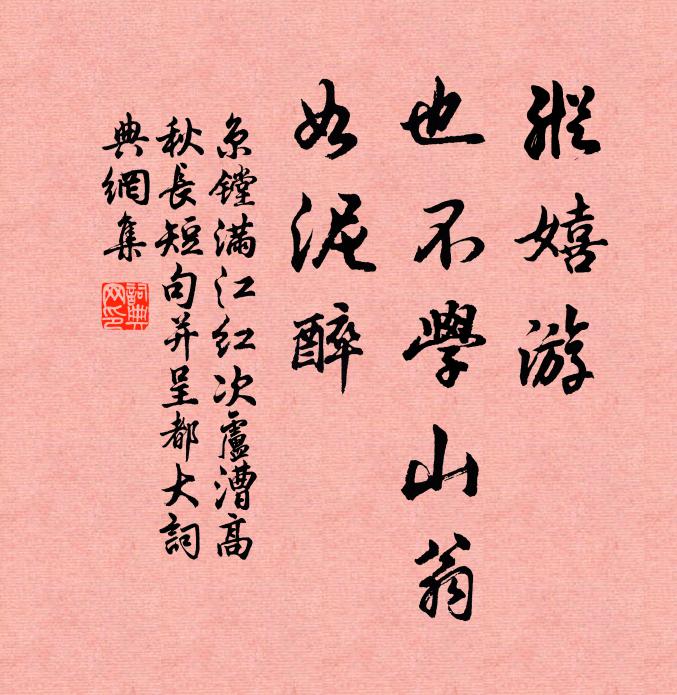 縱嬉游
也不學山翁
如泥醉
京鏜滿江紅次盧漕高
秋長短句并呈都大詞
典網集
詞典網印